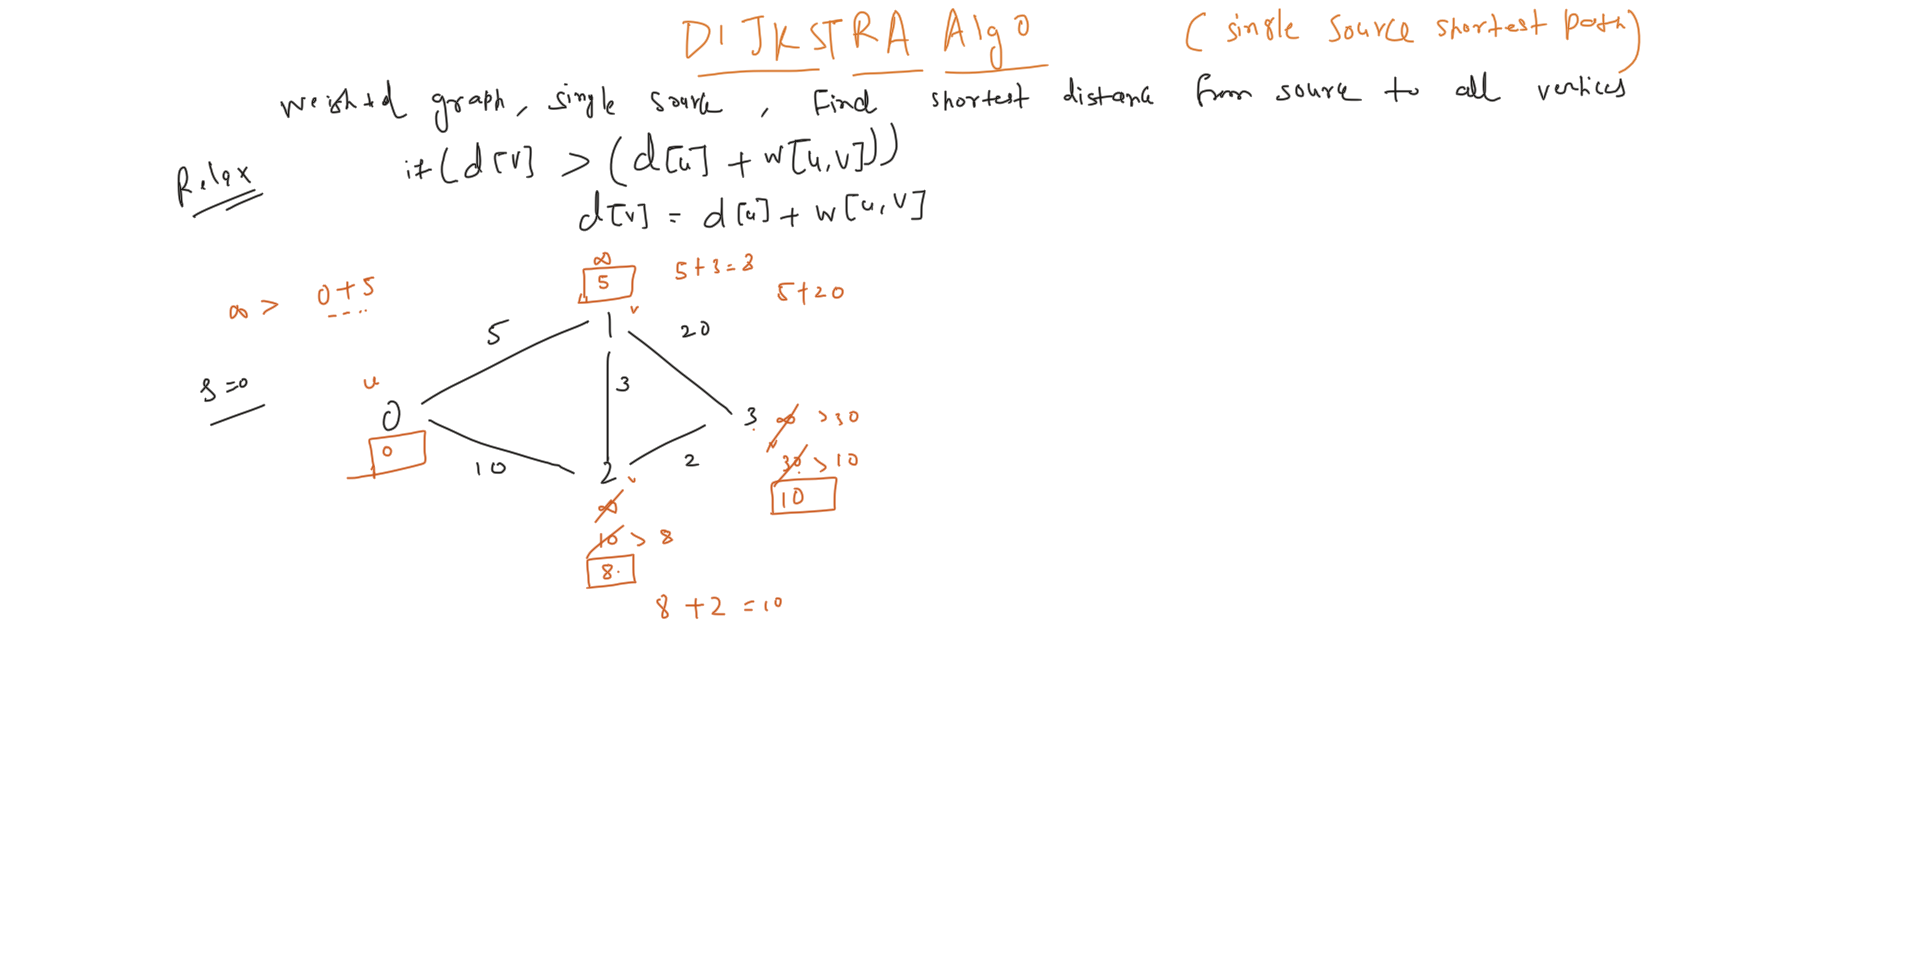 DIJKSTRA Algo (single source shortest path)
weighted graph, single source, Find shortest distance from source to all vertices
Relax if(d[v] > (d[u] + w[u,v]))
d[v] = d[u] + w[u,v]
∞
5 5+3=8
5+20
∞ > 0+5
v
5 1 20
u 3
s=0
0 3 ∞ >30
0
10 2 2 30 >10
v
∞ 10
10 > 8
8
8 +2 =10